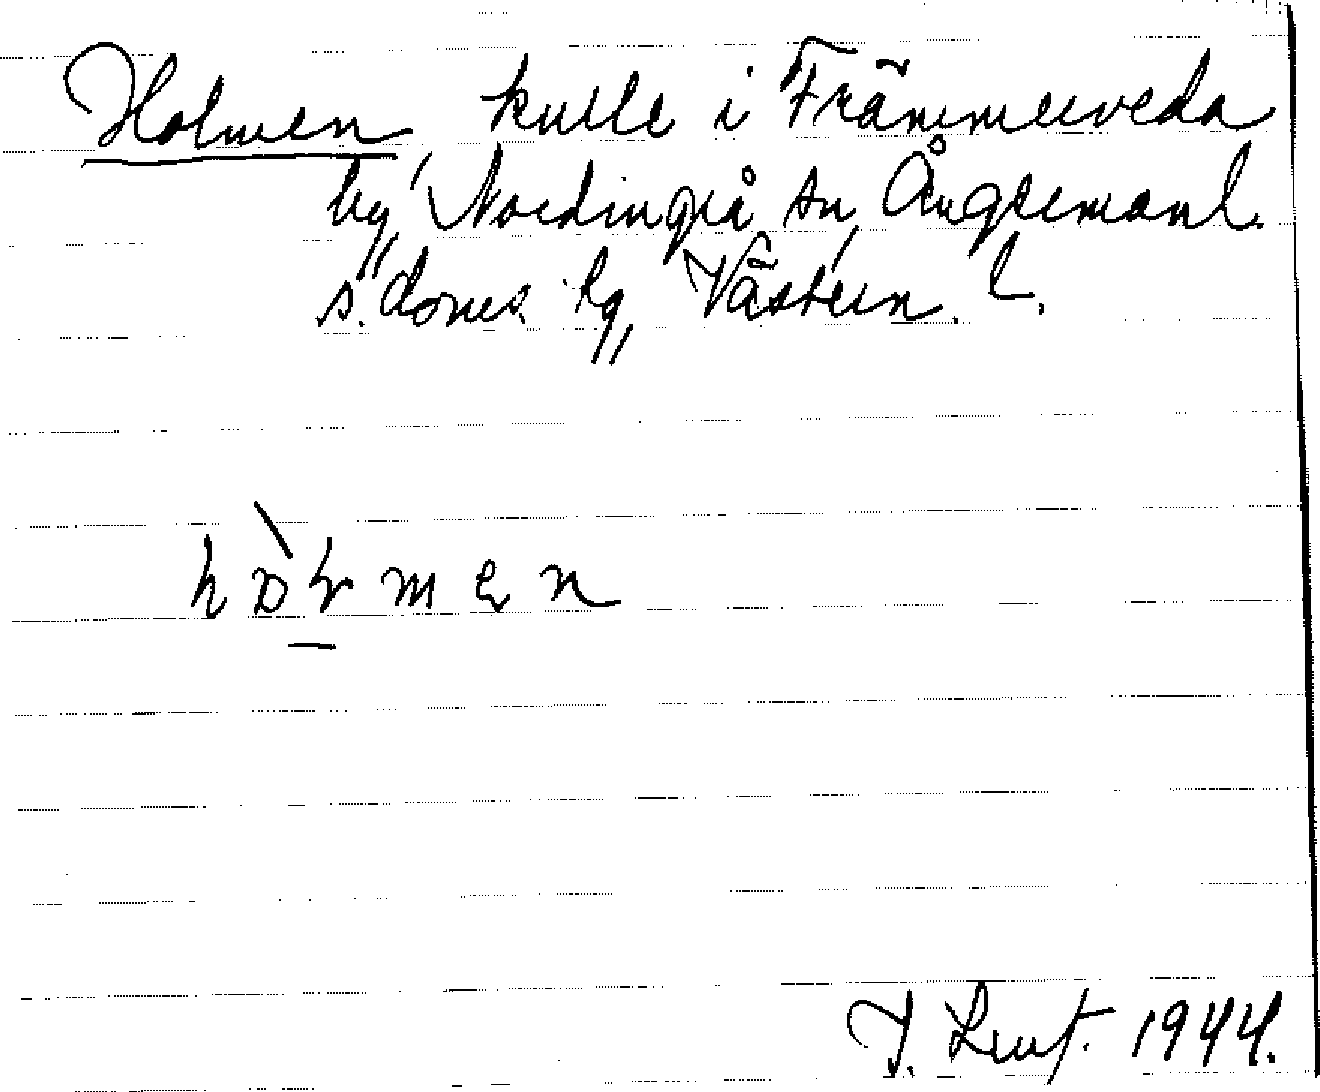 Holmen kulle i Främmerveda
by, Nordingrå sn, Ångermanl.
s. doms. hg, Västern. l.
hɷ̀ɽmen
1944.